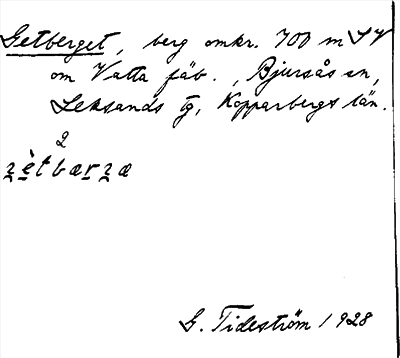 Getberget, berg omkr. 700 m SV
om Vatta fäb., Bjursås sn,
Leksands tg, Kopparbergs län.
2
zètbærzæ
G. Tideström 1928